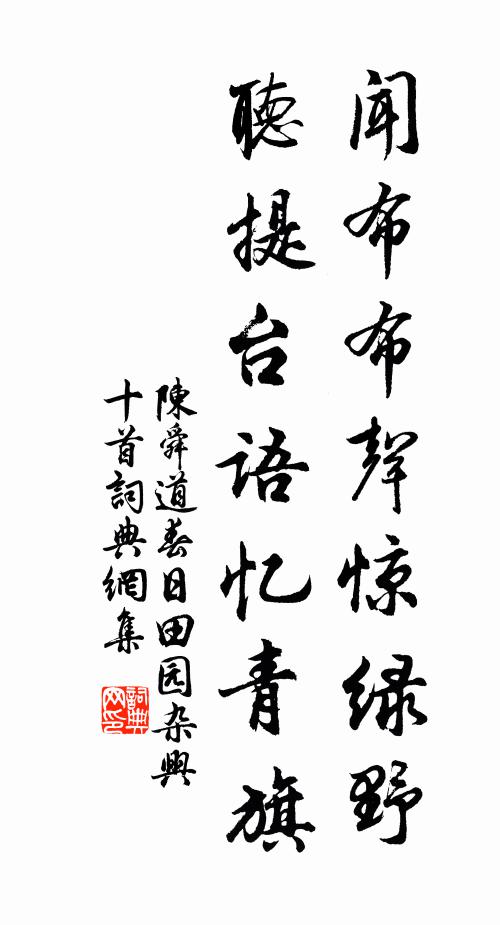 闻布布聲惊绿野
聽提台語忆青旗
陳舜道春日田园杂興
十首詞典網集
詞典
网印